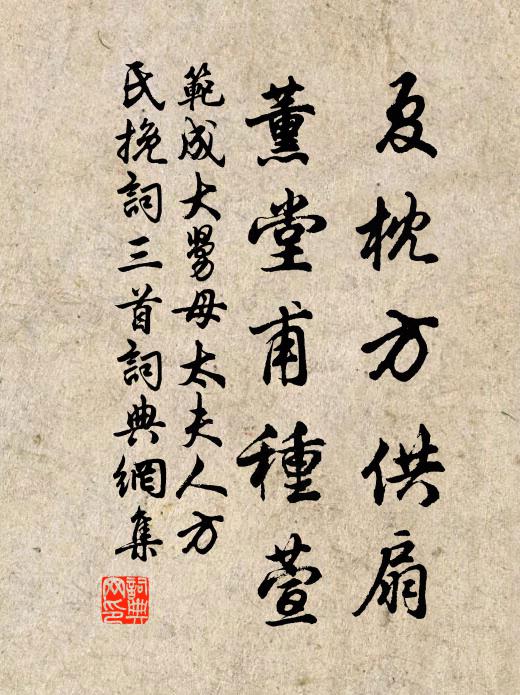 夏枕方供扇
薰堂甫種萱
範成大舅母太夫人方
氏挽詞三首詞典網集
詞典网印